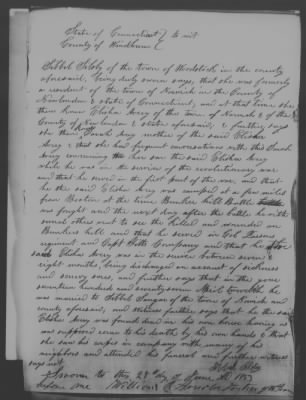 State of Connecticut } to wit
County of Windham }
Sibbel Sibly of the town of Woodstock in the county
aforesaid, being duly sworn says, that she was formerly
a resident of the town of Norwich in the County of
Newlondon & state of Connecticut, and at that time she
then knew Elisha Avery of the town of Norwich & of the
County of Newlondon & state aforesaid, & further says
she then knew Sarah Avery mother of the said Elisha
Avery & that she had frequent conversations with this Sarah
Avery concerning her son the said Elisha Avery
while he was in the service of the revolutionary war
and that he served in the first part of the war, and that
he the said Elisha Avery was camped at a few miles
from Boston at the time Bunker hill Battle
was fought and the very day after the battle he with
several others went to see the killed and wounded on
Bunkers hill and that he served in Col Parsons
regiment and Capt Company and that he the
said Elisha Avery was in the service between seven &
eight months, being discharged on account of sickness
and further says that in the year
seventeen hundred and seventy seven April he
was married to Sibbel of the town of Norwich and
county aforesaid, and witness further says that he the said
Elisha Avery was found dead in his own house having as
was supposed come to his death by his own hands & that
she saw his corps in company with many of his
neighbors and attended his funeral and further witness
says not
Sworn to this 28th day of June
before me William